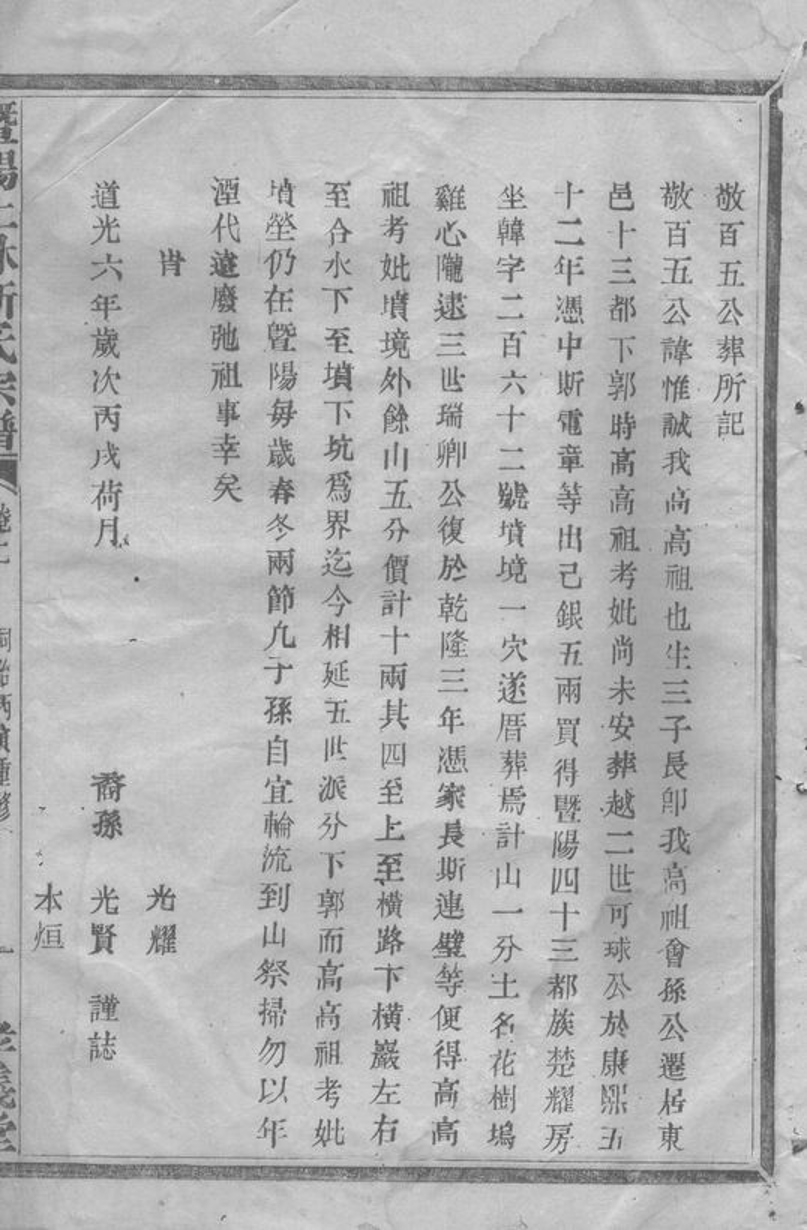 敬百五公葬所記
敬百五公諱惟誠我高高祖也生三子長卽我高祖會孫公遷居東
邑十三都下郭時高高祖考妣尚未安葬越二世可球公於康熙五
十二年憑中斯電章等出己銀五兩買得暨陽四十三都族楚耀房
坐韓字二百六十二號墳境一穴遂厝葬焉計山一分土名花樹塢
雞心隴逮三世瑞卿公復於乾隆三年憑家長斯連璧等便得高高
祖考妣墳境外餘山五分價計十兩其四至上至橫路下橫巖左右
至合水下至墳下坑爲界迄今相延五世派分下郭而高高祖考妣
墳塋仍在暨陽每歲春冬兩節凡子孫自宜輪流到山祭掃勿以年
湮代遠廢弛祖事幸矣
旹
道光六年歲次丙戌荷月
光耀
裔孫 光賢 謹誌
本烜
暨陽上林斯氏宗譜 卷二 孝義堂